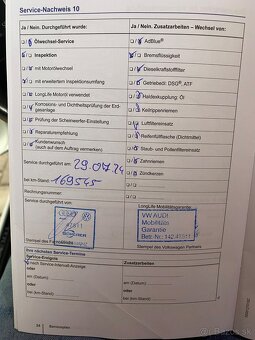 Service-Nachweis 10
Ja / Nein. Durchgeführt wurde:
Ölwechsel-Service
Inspektion
mit Motorölwechsel
mit erweitertem Inspektionsumfang
LongLife Motoröl verwendet
Korrosions- und Dichtheitsprüfung der Erdgasanlage
Prüfung der Scheinwerfer-Einstellung
Reparaturempfehlung
Kundenwunsch
(auch auf dem Auftrag vermerken)
Service durchgeführt am: 29.07.24
bei km-Stand: 169545
Rechnungsnummer:
Service durchgeführt von:
Stempel des
Ja / Nein. Zusatzarbeiten – Wechsel von:
AdBlue®
Bremsflüssigkeit
Dieselkraftstofffilter
Getriebeöl: DSG®, ATF
Haldexkupplung Öl
Keilrippenriemen
Luftfiltereinsatz
Reifenfüllflasche (Dichtmittel)
Staub- und Pollenfiltereinsatz
Zahnriemen
Zündkerzen
LongLife-Mobilitätsgarantie:
VW AUDI
Mobilitäts
Garantie
Stempel des Volkswagen Partners
Ihre nächsten Service-Termine
Service-Ereignis
nach Service-Intervall-Anzeige
oder
am (Datum)
oder
bei (km-Stand)
Zusatzarbeiten:
am (Datum)
oder
bei (km-Stand)
24
Serviceplan